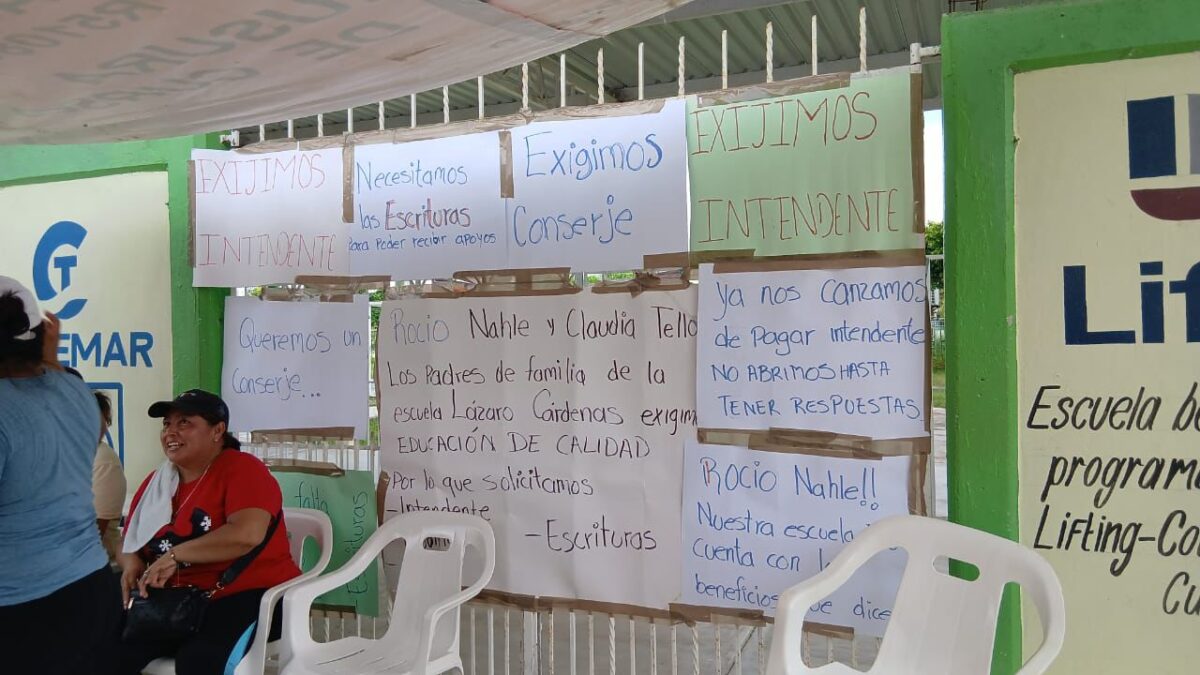 EXIJIMOS
INTENDENTE
Necesitamos
las Escrituras
Para Poder recibir apoyos
Exigimos
Conserje
EXIJIMOS
INTENDENTE
Queremos un
Conserje...
Rocio Nahle y Claudia Tello
Los Padres de familia de la
escuela Lázaro Cárdenas
EDUCACIÓN DE CALIDAD
Por lo que solicitamos
-Intendente
-Escrituras
Ya nos canzamos
de Pagar intendente
NO ABRIMOS HASTA
TENER RESPUESTAS
Rocio Nahle!!
Nuestra escuela
cuenta con
beneficios que dice
falta
Escrituras
EMAR
Lif
Escuela
program
Lifting-Co
Cu